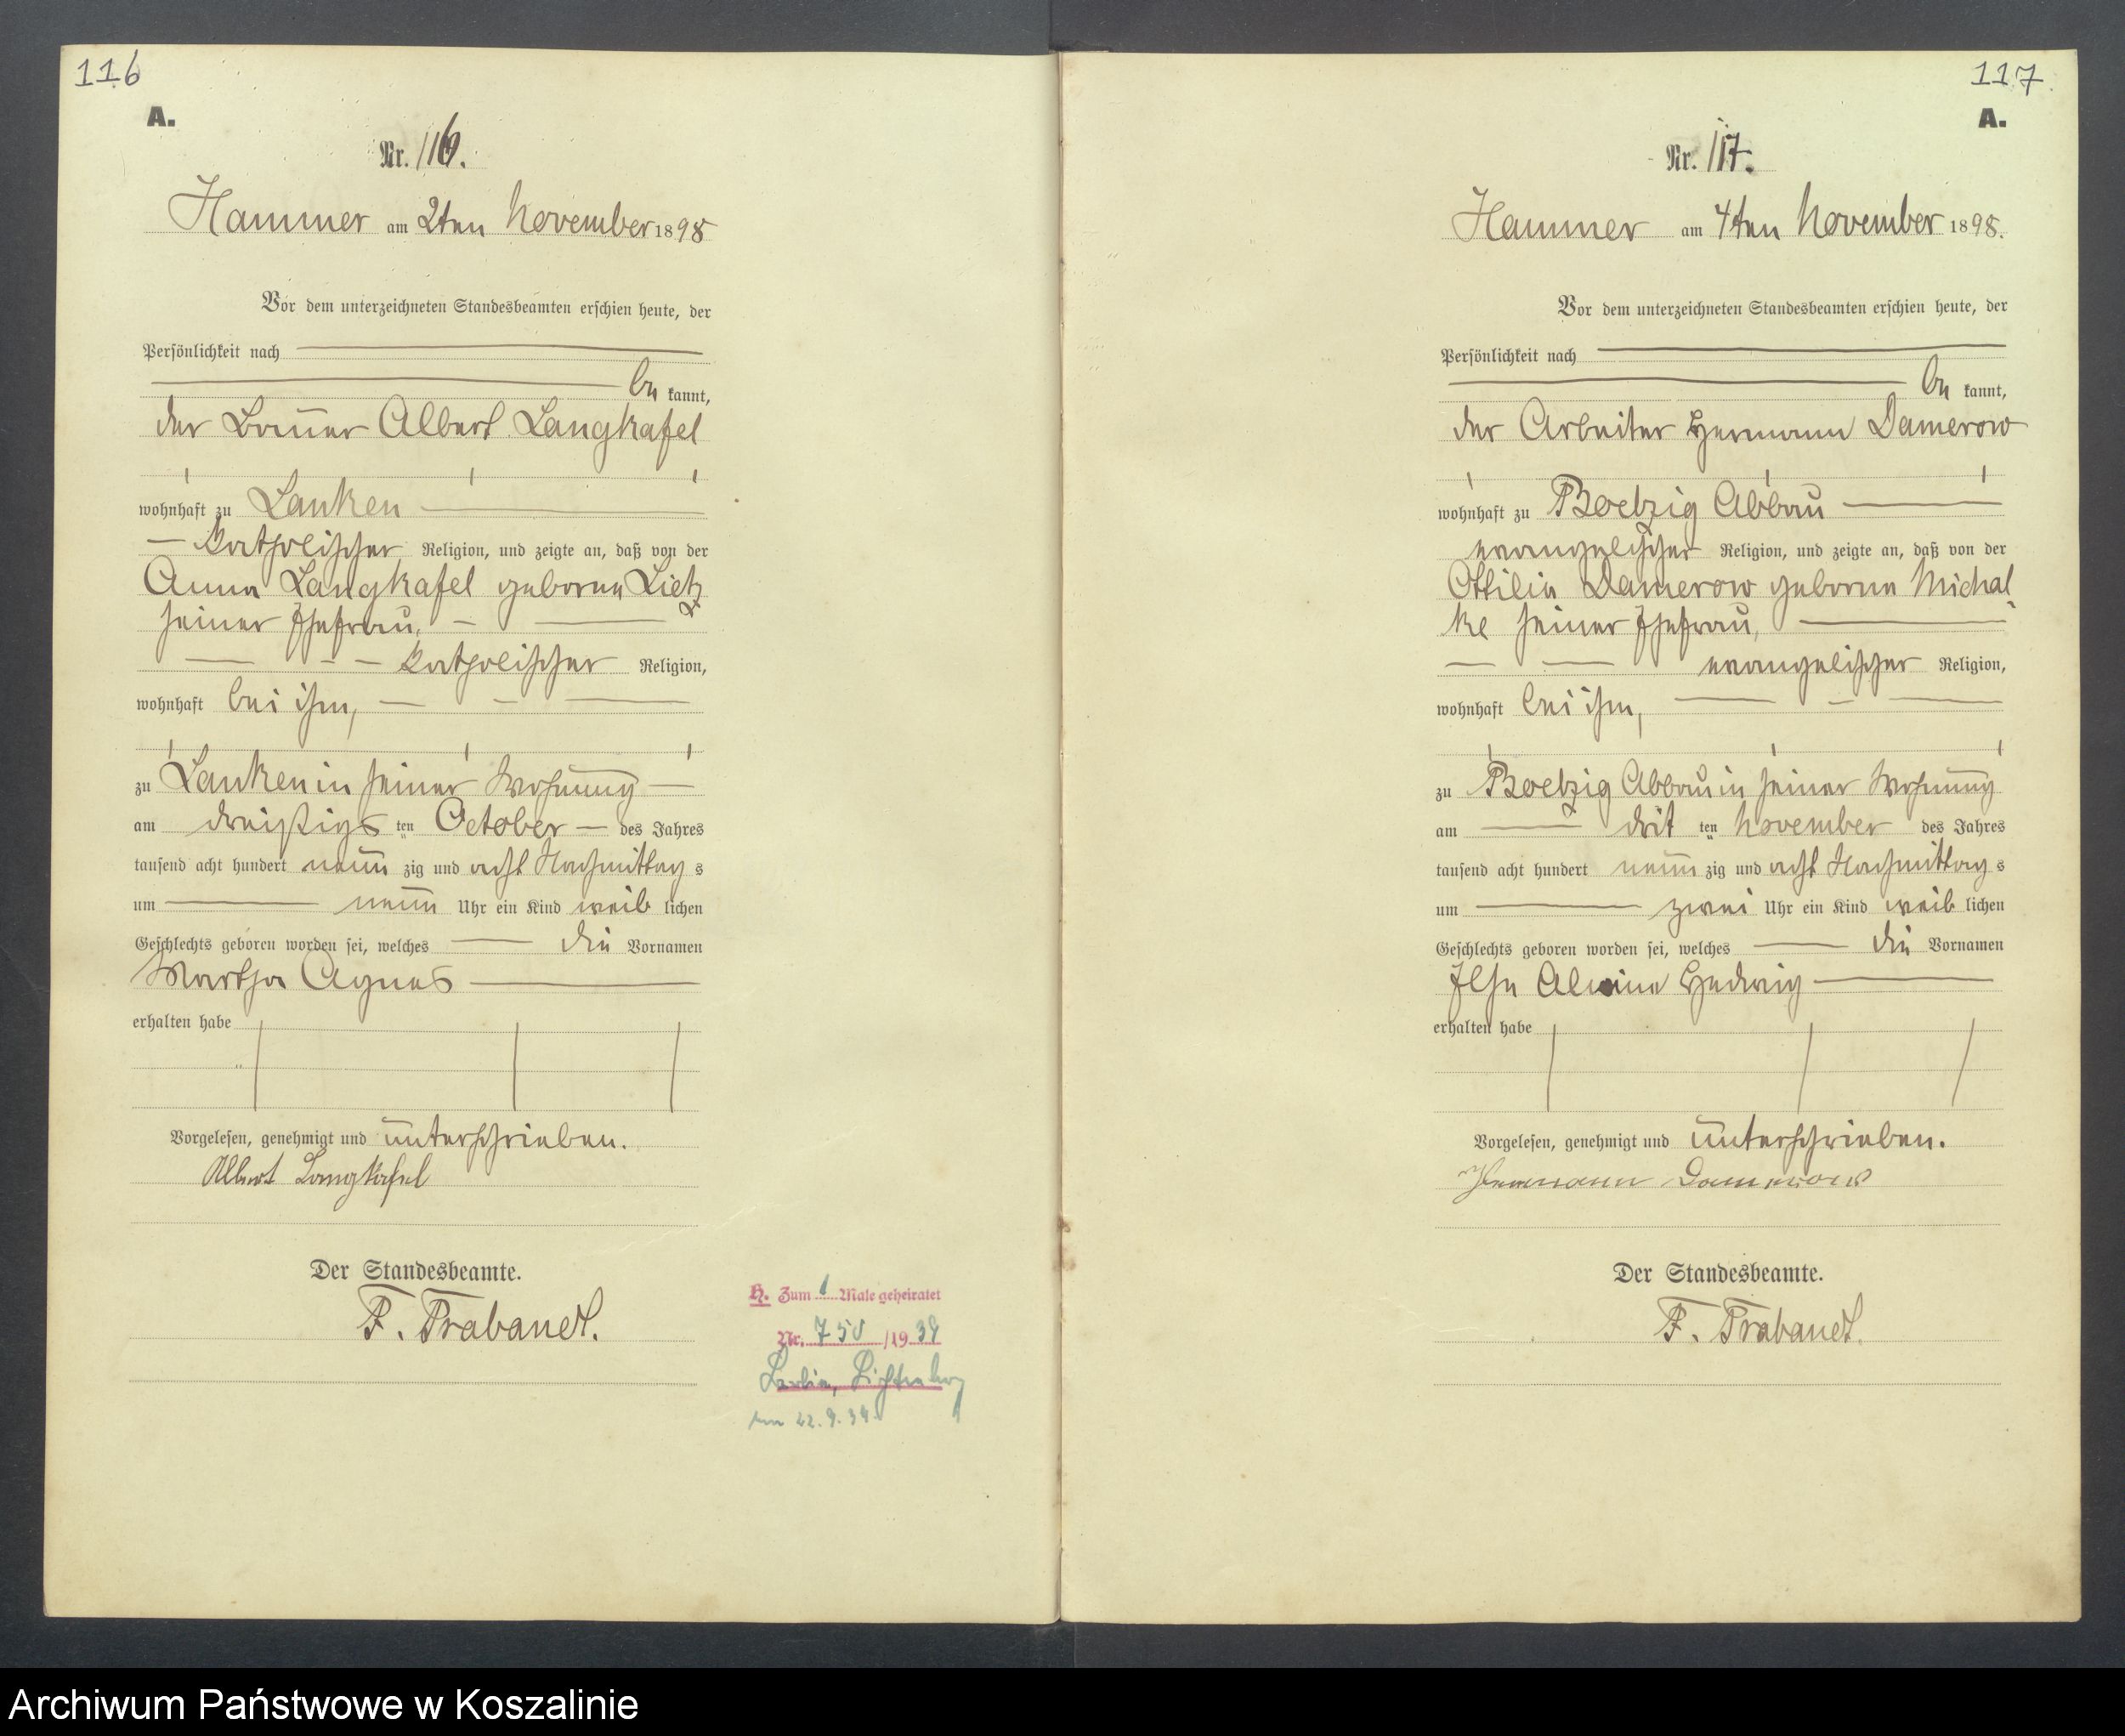 116
A.
Nr. 116.
Hammer am 2ten November 1898
Vor dem unterzeichneten Standesbeamten erschien heute, der
Persönlichkeit nach
be kannt,
der Bauer Albert Langkafel
wohnhaft zu Lanken
katholischer Religion, und zeigte an, daß von der
Anna Langkafel geborene Lietz
seiner Ehefrau,
katholischer Religion,
wohnhaft bei ihm,
zu Lanken in seiner Wohnung
am dreißigs ten October des Jahres
tausend acht hundert neun zig und acht Nachmittag s
um neun Uhr ein Kind weib lichen
Geschlechts geboren worden sei, welches die Vornamen
Martha Agnes
erhalten habe
Vorgelesen, genehmigt und unterschrieben.
Albert Langkafel
Der Standesbeamte.
F. Trabandt.
H. Zum 1 Male geheiratet
Nr. 750 /19 39
Berlin, Lichtenberg
am 22.9.39.
117
A.
Nr. 117.
Hammer am 4ten November 1898.
Vor dem unterzeichneten Standesbeamten erschien heute, der
Persönlichkeit nach
be kannt,
der Arbeiter Hermann Damerow
wohnhaft zu Boetzig Abbau
evangelischer Religion, und zeigte an, daß von der
Ottilie Damerow geborene Michal
ke seiner Ehefrau,
evangelischer Religion,
wohnhaft bei ihm,
zu Boetzig Abbau in seiner Wohnung
am drit ten November des Jahres
tausend acht hundert neun zig und acht Nachmittag s
um zwei Uhr ein Kind weib lichen
Geschlechts geboren worden sei, welches die Vornamen
Ilse Alwine Hedwig
erhalten habe
Vorgelesen, genehmigt und unterschrieben.
Hermann Damerow
Der Standesbeamte.
F. Trabandt.
Archiwum Państwowe w Koszalinie